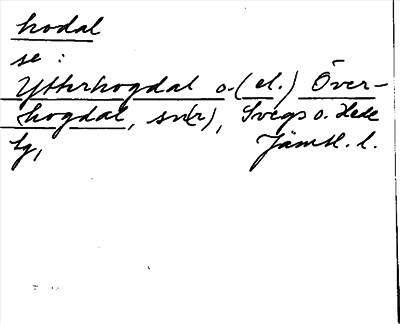 hodal
se :
Ytterhogdal o. (el.) Över-
hogdal, sn(r), Svegs o. Hede
tg, Jämtl. l.